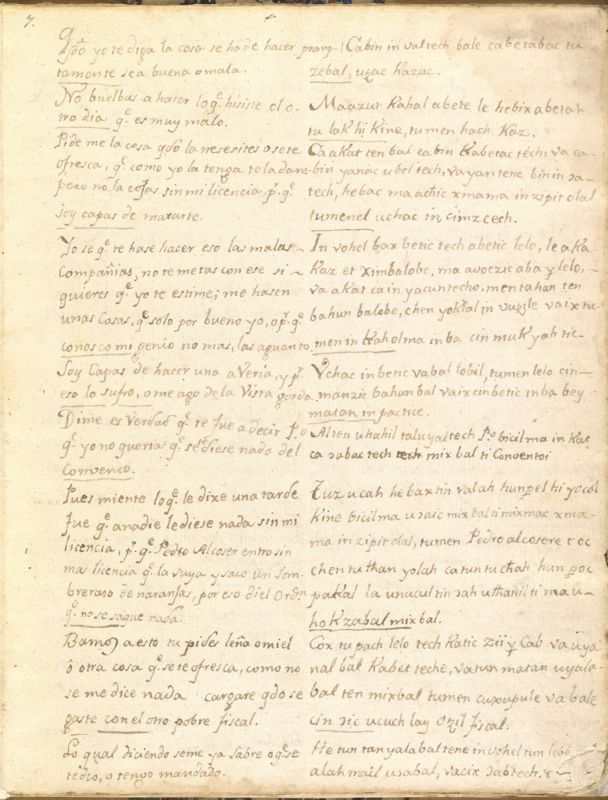 7.
Qdo yo te diga la cosa se ha de hacer promp-
tamente sea buena o mala.
Cabin in valtech bale cabetabac tu
zebal, uɔac kaɔac.
No buelbas a hacer lo qe hisiste el o-
tro dia qe es muy malo.
Maaɔut kahal abete le hebix abetah
tu lak hi kine, tumen hach kaz.
Pide me la cosa qdo la nesesites o se te
ofresca, qe como yo la tenga te la dare
pero no la cojas sin mi licencia pr qe
soy capas de matarte.
Ca akat ten bal cabin kabetac tech, va ca-
bin yanac ubel tech, va yan tene bin in ɔa-
tech, he bac ma achic xmama in zipit olal
tumenel uchac in cimzcech.
Yo se qe te hase hacer eso las malas
Compañias, no te metas con ese si
quieres qe yo te estime; me hasen
unas cosas, qe solo por bueno yo, o pr qe
conosco mi genio no mas, las aguanto
In vohel bax betic tech abetic lelo, le aka-
kaz et ximbalobe, ma avoczic aba y lelo,
va akat ca in yacuntecho. men tahan ten
bahun balobe, chen yoklal in vuɔle va ix tu-
men in kaholma inba cin muk yah tic.
Soy Capas de hacer una averia, y pr
eso lo sufro, o me ago de la Vista gorda
Uchac in betic va bal lobil, tumen lelo cin-
manzic bahun bal vaix cin betic inba bey
matan in pactice.
Dime es Verdad qe te fue a decir Po
qe yo no queria qe se te diese nada del
Convento.
Alten uhahil talu yaltech Po bicil ma in kat
ca ɔabac tech mix bal ti Conventoi
Pues miente lo qe le dixe una tarde
fue qe a nadie le diese nada sin mi
licencia, pr qe Pedro Alcoser entro sin
mas licencia qe la suya y saco un Som-
brerazo de naranjas, por eso di el Ordn
qe no se saque nada.
Tuz u cah he bax tin valah hunpel hi yocol
kine bicilma uɔaic mixbal ti mixmac xma-
ma in zipit olal, tumen Pedro alcosere t oc
chen tu than yolah ca tun tu chah hun poc
pakal la unucul tin ɔah uthanil ti ma u-
hokzabal mixbal.
Bamos a esto tu pides leña o miel
ô otra cosa qe se te ofresca, como no
se me dice nada cargare qdo se
gaste con el otro pobre fiscal.
Cox tu pach lelo tech katic zii y Cab va uya
nal bal kabet teche, va tun matan uyala-
bal ten mixbal tumen cuxupule va bale
cin ɔic ucuch lay Oɔil fiscal.
Lo qual diciendo seme ya sabre o qe se
te dio, o tengo mandado.
He tun tan yalabal tene in vohel tun lebe
alah mail uɔabal, vacix ɔabtech. r